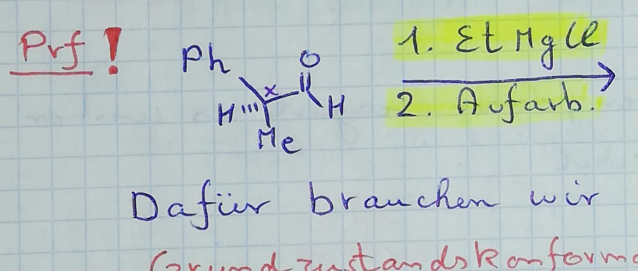 Prf!
Ph O
H H
Me
1. EtMgCl
2. Aufarb.
Dafür brauchen wir
Grundzustandskonforma